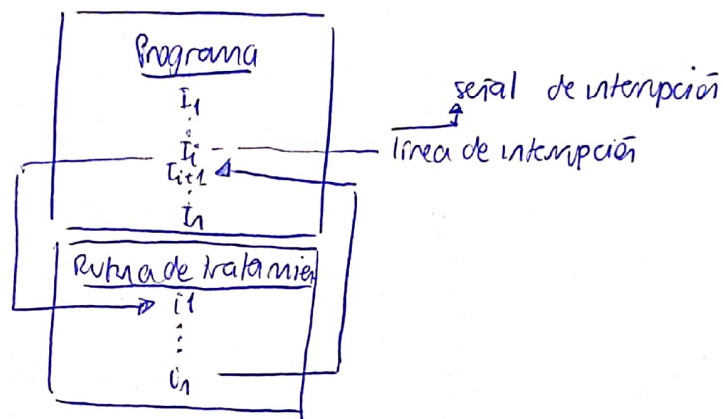 Programa
I1
señal de interrupción
Ii
línea de interrupción
Ii+1
In
Rutina de tratamien
i1
in